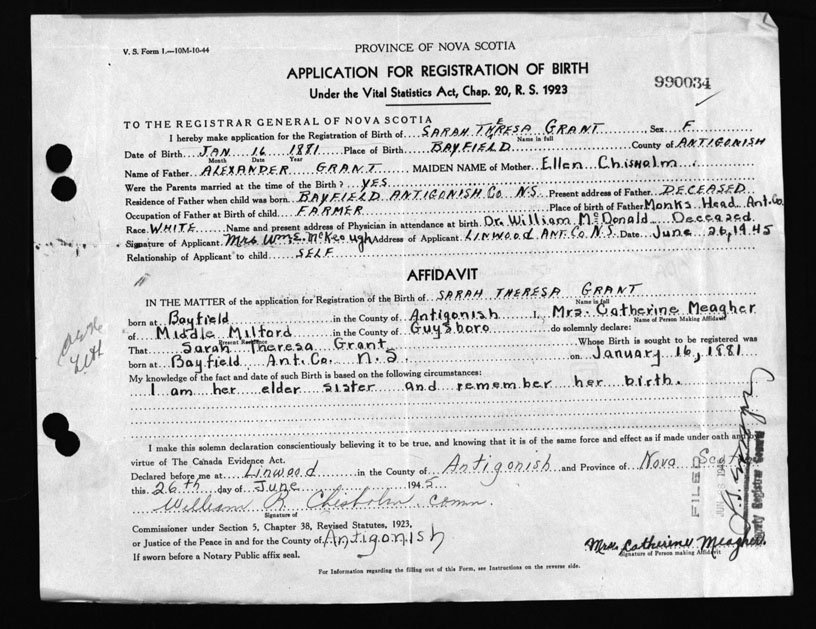 V. S. Form 1.—10M-10-44
PROVINCE OF NOVA SCOTIA
APPLICATION FOR REGISTRATION OF BIRTH
Under the Vital Statistics Act, Chap. 20, R. S. 1923
990034
TO THE REGISTRAR GENERAL OF NOVA SCOTIA
I hereby make application for the Registration of Birth of SARAH THERESA GRANT Sex F
Name in full
Date of Birth JAN 16 1881 Place of Birth BAYFIELD County of ANTIGONISH
Month Date Year
Name of Father ALEXANDER GRANT MAIDEN NAME of Mother Ellen Chisholm
Were the Parents married at the time of the Birth? YES
Residence of Father when child was born BAYFIELD ANTIGONISH Co N.S. Present address of Father DECEASED
Occupation of Father at Birth of child FARMER Place of birth of Father Monks Head Ant. Co.
Race WHITE Name and present address of Physician in attendance at birth Dr. William McDonald Deceased
Signature of Applicant Mrs Wm S. McKeough Address of Applicant LINWOOD ANT. CO N.S. Date June 26, 1945
Relationship of Applicant to child SELF
AFFIDAVIT
IN THE MATTER of the application for Registration of the Birth of SARAH THERESA GRANT
Name in full
born at Bayfield in the County of Antigonish I, Mrs. Catherine Meagher
Name of Person Making Affidavit
of Middle Milford in the County of Guysboro do solemnly declare:
Present Residence
That Sarah Theresa Grant Whose Birth is sought to be registered was
born at Bayfield Ant. Co. N. S. on January 16, 1881
My knowledge of the fact and date of such Birth is based on the following circumstances:
I am her elder sister and remember her birth.
I make this solemn declaration conscientiously believing it to be true, and knowing that it is of the same force and effect as if made under oath and by
virtue of The Canada Evidence Act.
Declared before me at Linwood in the County of Antigonish and Province of Nova Scotia
this 26th day of June 1945
William R Chisholm, comm.
Signature of
Commissioner under Section 5, Chapter 38, Revised Statutes, 1923,
or Justice of the Peace in and for the County of Antigonish
If sworn before a Notary Public affix seal.
Mrs. Catherine Meagher
Signature of Person making Affidavit
For Information regarding the filling out of this Form, see Instructions on the reverse side.
FILED
Deputy Registrar General